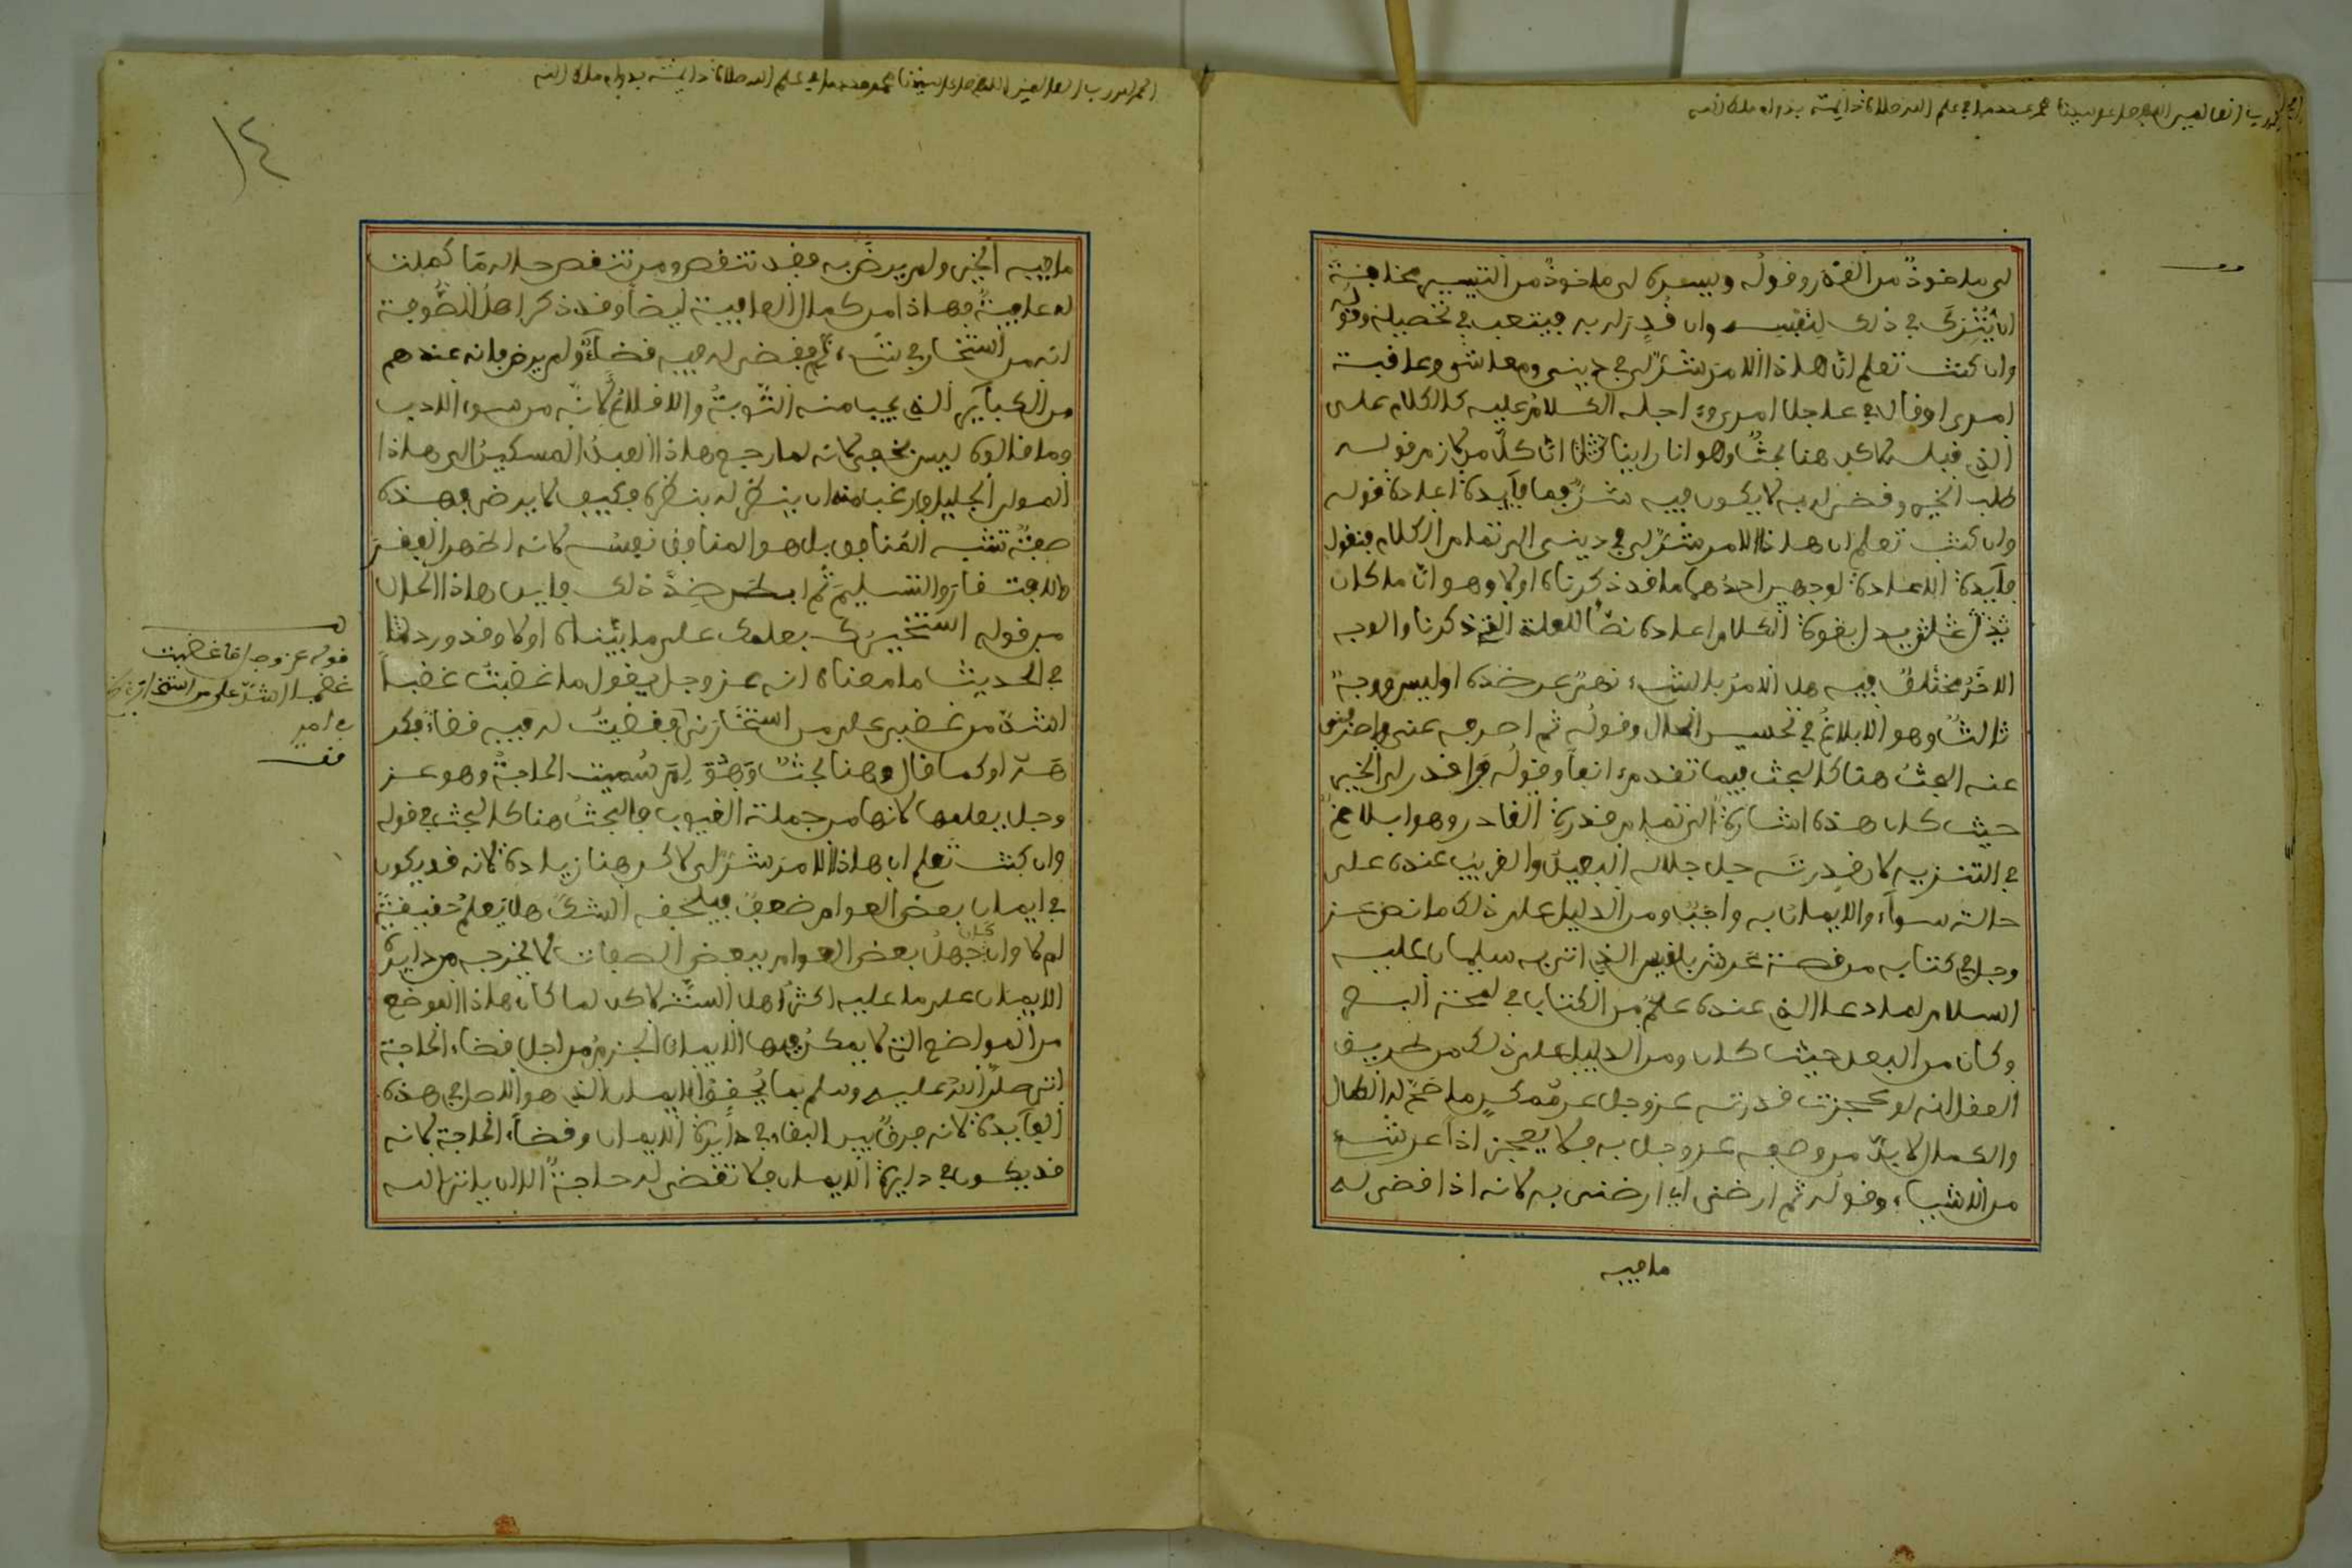 الحمد لله رب العالمين اللهم صل على سيدنا محمد عدد ما في علم الله صلاة دايمة بدوام ملك الله
لي ماخوذ من القدر وقوله ويسره لي ماخوذ من التيسير مخافة
ان يترك في ذلك لنفسه وان قدر له به فيتعب في تحصيله وقوله
وان كنت تعلم ان هاذا الامر شر لي في ديني ومعاشي وعاقبة
امري او قال في عاجل امري وءاجله الكلام عليه كالكلام على
الذي قبله لاكن هنا بحث وهو انا راينا ان كل من كان من قوله
طلب الخير وقضي له به لا يكون فيه شر فما فآيدة اعادة قوله
وان كنت تعلم ان هاذا الامر شر لي في ديني الى تمام الكلام فنقول
فآيدة الاعادة لوجهين احدهما ما قد ذكرناه اولا وهو ان ما كان
بقوة الكلام اعاده نصا للعلة التي ذكرنا والوجه
الاخر مختلف فيه هل الامر بالشيء نهي عن ضده او ليس ووجه
ثالث وهو الابلاغ في تحسين الحال وقوله ثم اصرفه عني واصرفني
عنه البحث هنا كالبحث فيما تقدم ءانفا وقوله واقدر لي الخير
حيث كان هذه اشارة الى تمام قدرة القادر وهو ابلاغ
في التنزيه لان قدرته جل جلاله البعيد والقريب عنده على
حالة سوآء والايمان به واجب ومن الدليل على ذلك ما نص عز
وجل في كتابه من قصة عرش بلقيس الذي اتى به سليمان عليه
السلام لما دعا الذي عنده علم من الكتاب في لمحة البصر
وكان من البعد حيث كان ومن الدليل على ذلك من طريق
العقل انه لو عجزت قدرته عز وجل عن ممكن ما صح له الكمال
والكمال لا بد من وصفه عز وجل به فلا يعجز اذا عن شيء
من الاشياء وقوله ثم ارضني اي ارضني به لانه اذا قضى له
ما فيه
الحمد لله رب العالمين اللهم صل على سيدنا محمد عدد ما في علم الله صلاة دايمة بدوام ملك الله
١٤
ما فيه الخير ولم يرض به فقد تنغص ومن تنغص حاله ما كملت
له عافية فهاذا من كمال العافية ايضا وقد ذكر اهل الصوفة
انه من استخار في شيء ثم قضي له فيه قضآء ولم يرض فانه عندهم
من الكبآير التي يجب منه التوبة والاقلاع لانه من سوء الادب
وما قالوه ليس بخفي لانه لما رجع هاذا العبد المسكين الى هاذا
المولى الجليل ورغب منه ان ينظر له بنظره فكيف لا يرضى فهذه
صفة تشبه النفاق بل هو النفاق نفسه لانه اظهر الفقر
والافتقار والتسليم ثم ابطن ضد ذلك فاين هاذا الحال
من قوله استخيرك بعلمك على ما بيناه اولا وقد ورد
في الحديث ما معناه انه عز وجل يقول ما غضبت غضبا
اشد من غضبي على من استخارني فقضيت له فيه قضاء فكر
هه او كما قال وهنا بحث وهو لم سميت الحاجة وهو عز
وجل يعلمها لانها من جملة الغيوب فالبحث هنا كالبحث في قوله
وان كنت تعلم ان هاذا الامر شر لي لاكن هنا زيادة لانه قد يكون
في ايمان بعض العوام ضعف فيلحقه الشك هل يعلم حقيقة
ام لا وان كان جهل بعض العوام ببعض الصفات لا يخرجه من دايرة
الايمان على ما عليه اكثر اهل السنة لاكن لما كان هاذا الموضع
من المواضع التي لا يمكن فيها الايمان الجزم من اجل قضاء الحاجة
اتى صلى الله عليه وسلم بما يحقق الايمان الذي هو الاصل في هذه
الفآيدة لانه فرق بين البقاء في دآيرة الايمان وقضاء الحاجة لانه
قد يكون في دايرة الايمان فلا تقضى له حاجة الا ان ياتي الله
قوله عز وجل ما غضبت
غضبا اشد على من استخارني
في امر